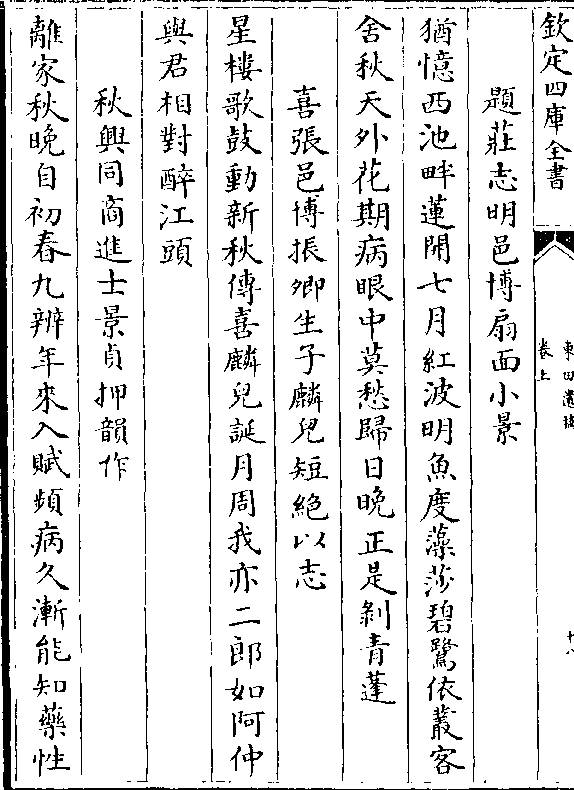 欽定四庫全書
東田遺稿
卷上
十八
題莊志明邑博扇面小景
猶憶西池畔蓮開七月紅波明魚度藻莎碧鷺依叢客
舍秋天外花期病眼中莫愁歸日晚正是剝青蓬
喜張邑博振卿生子麟兒短絕以志
星樓歌鼓動新秋傳喜麟兒誕月周我亦二郎如阿仲
與君相對醉江頭
秋興同商進士景貞押韻作
離家秋晚自初春九辨年來入賦頻病久漸能知藥性